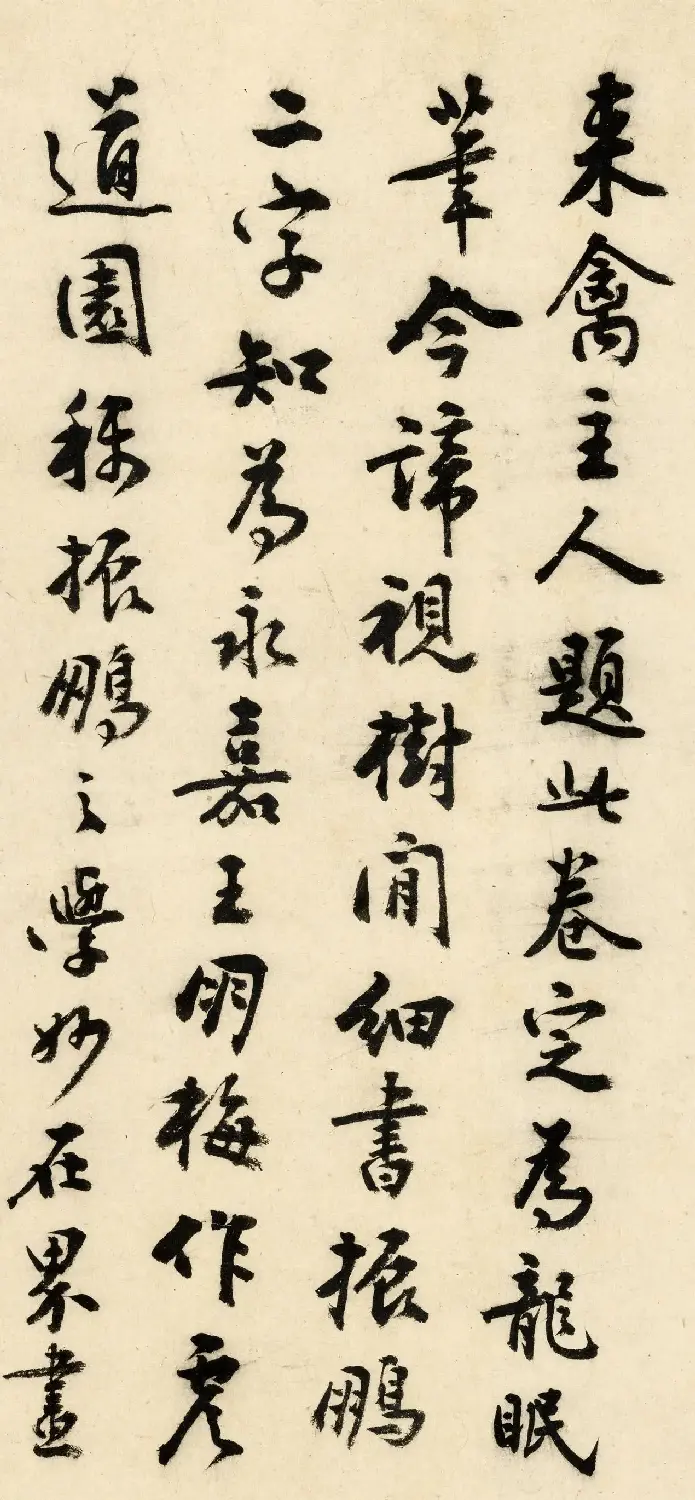 来禽主人題此卷定為龍眠
筆今諦視樹間細書振鵬
二字知為永嘉王朋梅作虞
道園稱振鵬之學妙在界畫